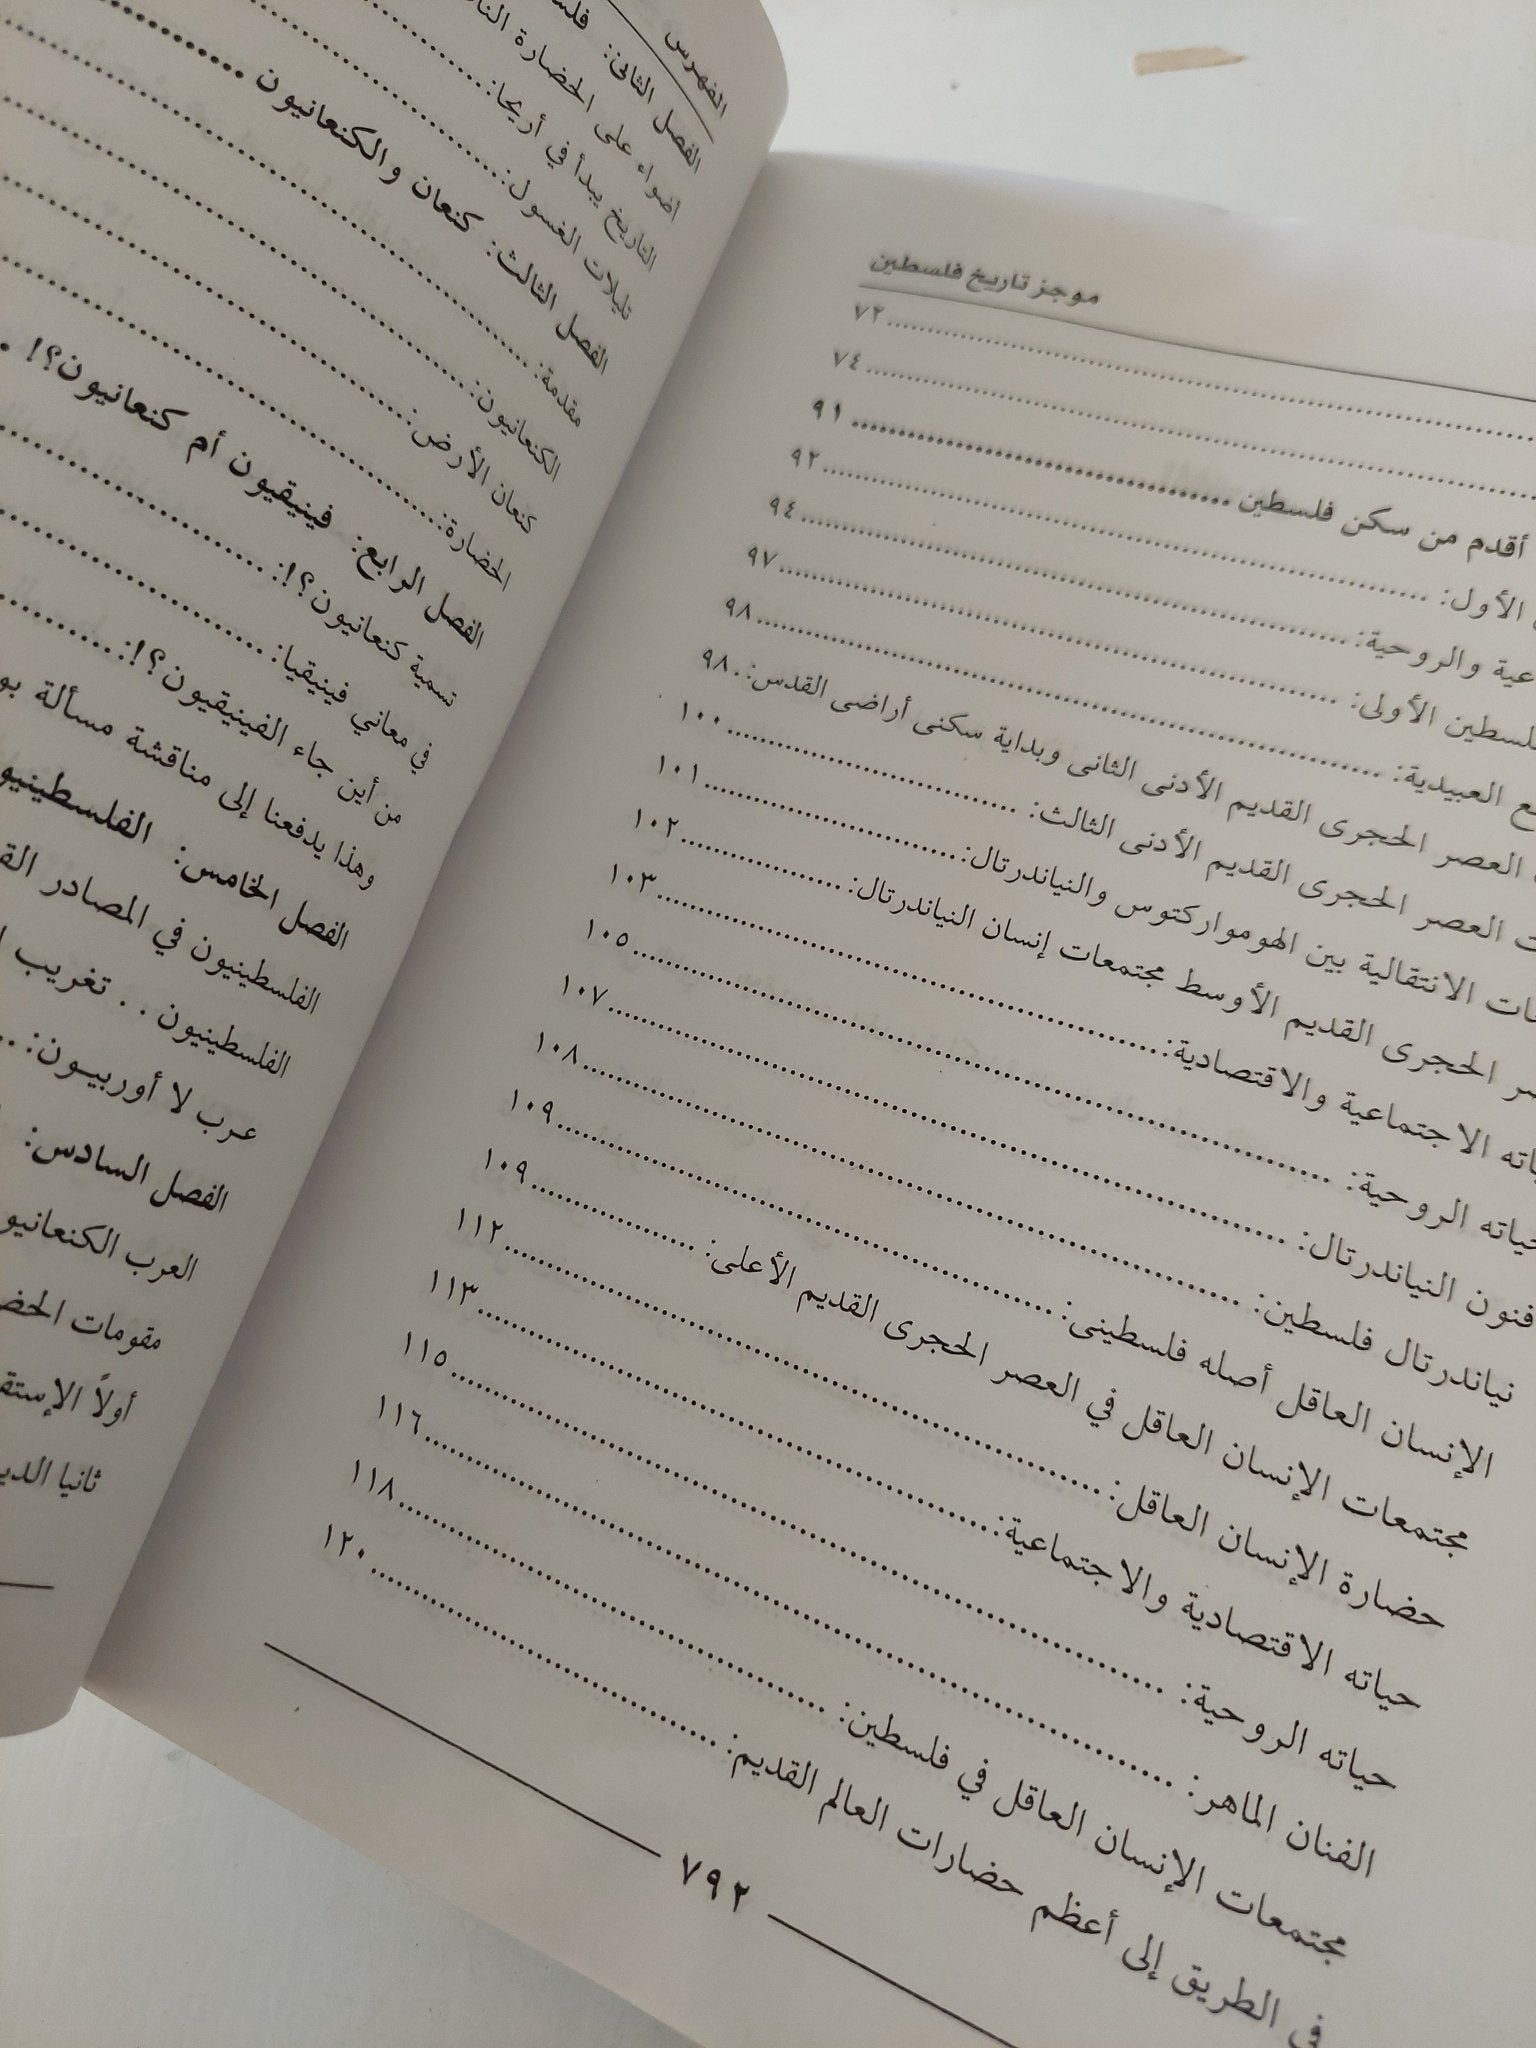 موجز تاريخ فلسطين
٧٢
٧٤
أقدم من سكن فلسطين ٩١
الأول: ٩٢
والروحية: ٩٤
الأولى: ٩٧
العبيدية: ٩٨
العصر الحجرى القديم الأدنى الثانى وبداية سكنى أراضى القدس: ٩٨
العصر الحجرى القديم الأدنى الثالث: ١٠٠
الانتقالية بين الهومواركتوس والنياندرتال: ١٠١
الحجرى القديم الأوسط مجتمعات إنسان النياندرتال: ١٠٢
الاجتماعية والاقتصادية: ١٠٣
حياته الروحية: ١٠٥
فنون النياندرتال: ١٠٧
نياندرتال فلسطين: ١٠٨
الإنسان العاقل أصله فلسطينى: ١٠٩
مجتمعات الإنسان العاقل في العصر الحجرى القديم الأعلى: ١٠٩
حضارة الإنسان العاقل: ١١٢
حياته الاقتصادية والاجتماعية: ١١٣
حياته الروحية: ١١٥
الفنان الماهر: ١١٦
مجتمعات الإنسان العاقل في فلسطين: ١١٨
فى الطريق إلى أعظم حضارات العالم القديم: ١٢٠
٧٩٢
الفهرس
الفصل الثانى:
أضواء على الحضارة
التاريخ يبدأ في أريحا:
تليلات الغسول:
الفصل الثالث: كنعان والكنعانيون
مقدمة:
الكنعانيون:
كنعان الأرض:
الحضارة:
الفصل الرابع: فينيقيون أم كنعانيون؟!
تسمية كنعانيون؟!:
في معاني فينيقيا:
من أين جاء الفينيقيون؟!:
وهذا يدفعنا إلى مناقشة مسألة
الفصل الخامس:
الفلسطينيون في المصادر
الفلسطينيون . . تغريب
عرب لا أوربيون:
الفصل السادس:
العرب
مقومات
أولاً
ثانيا